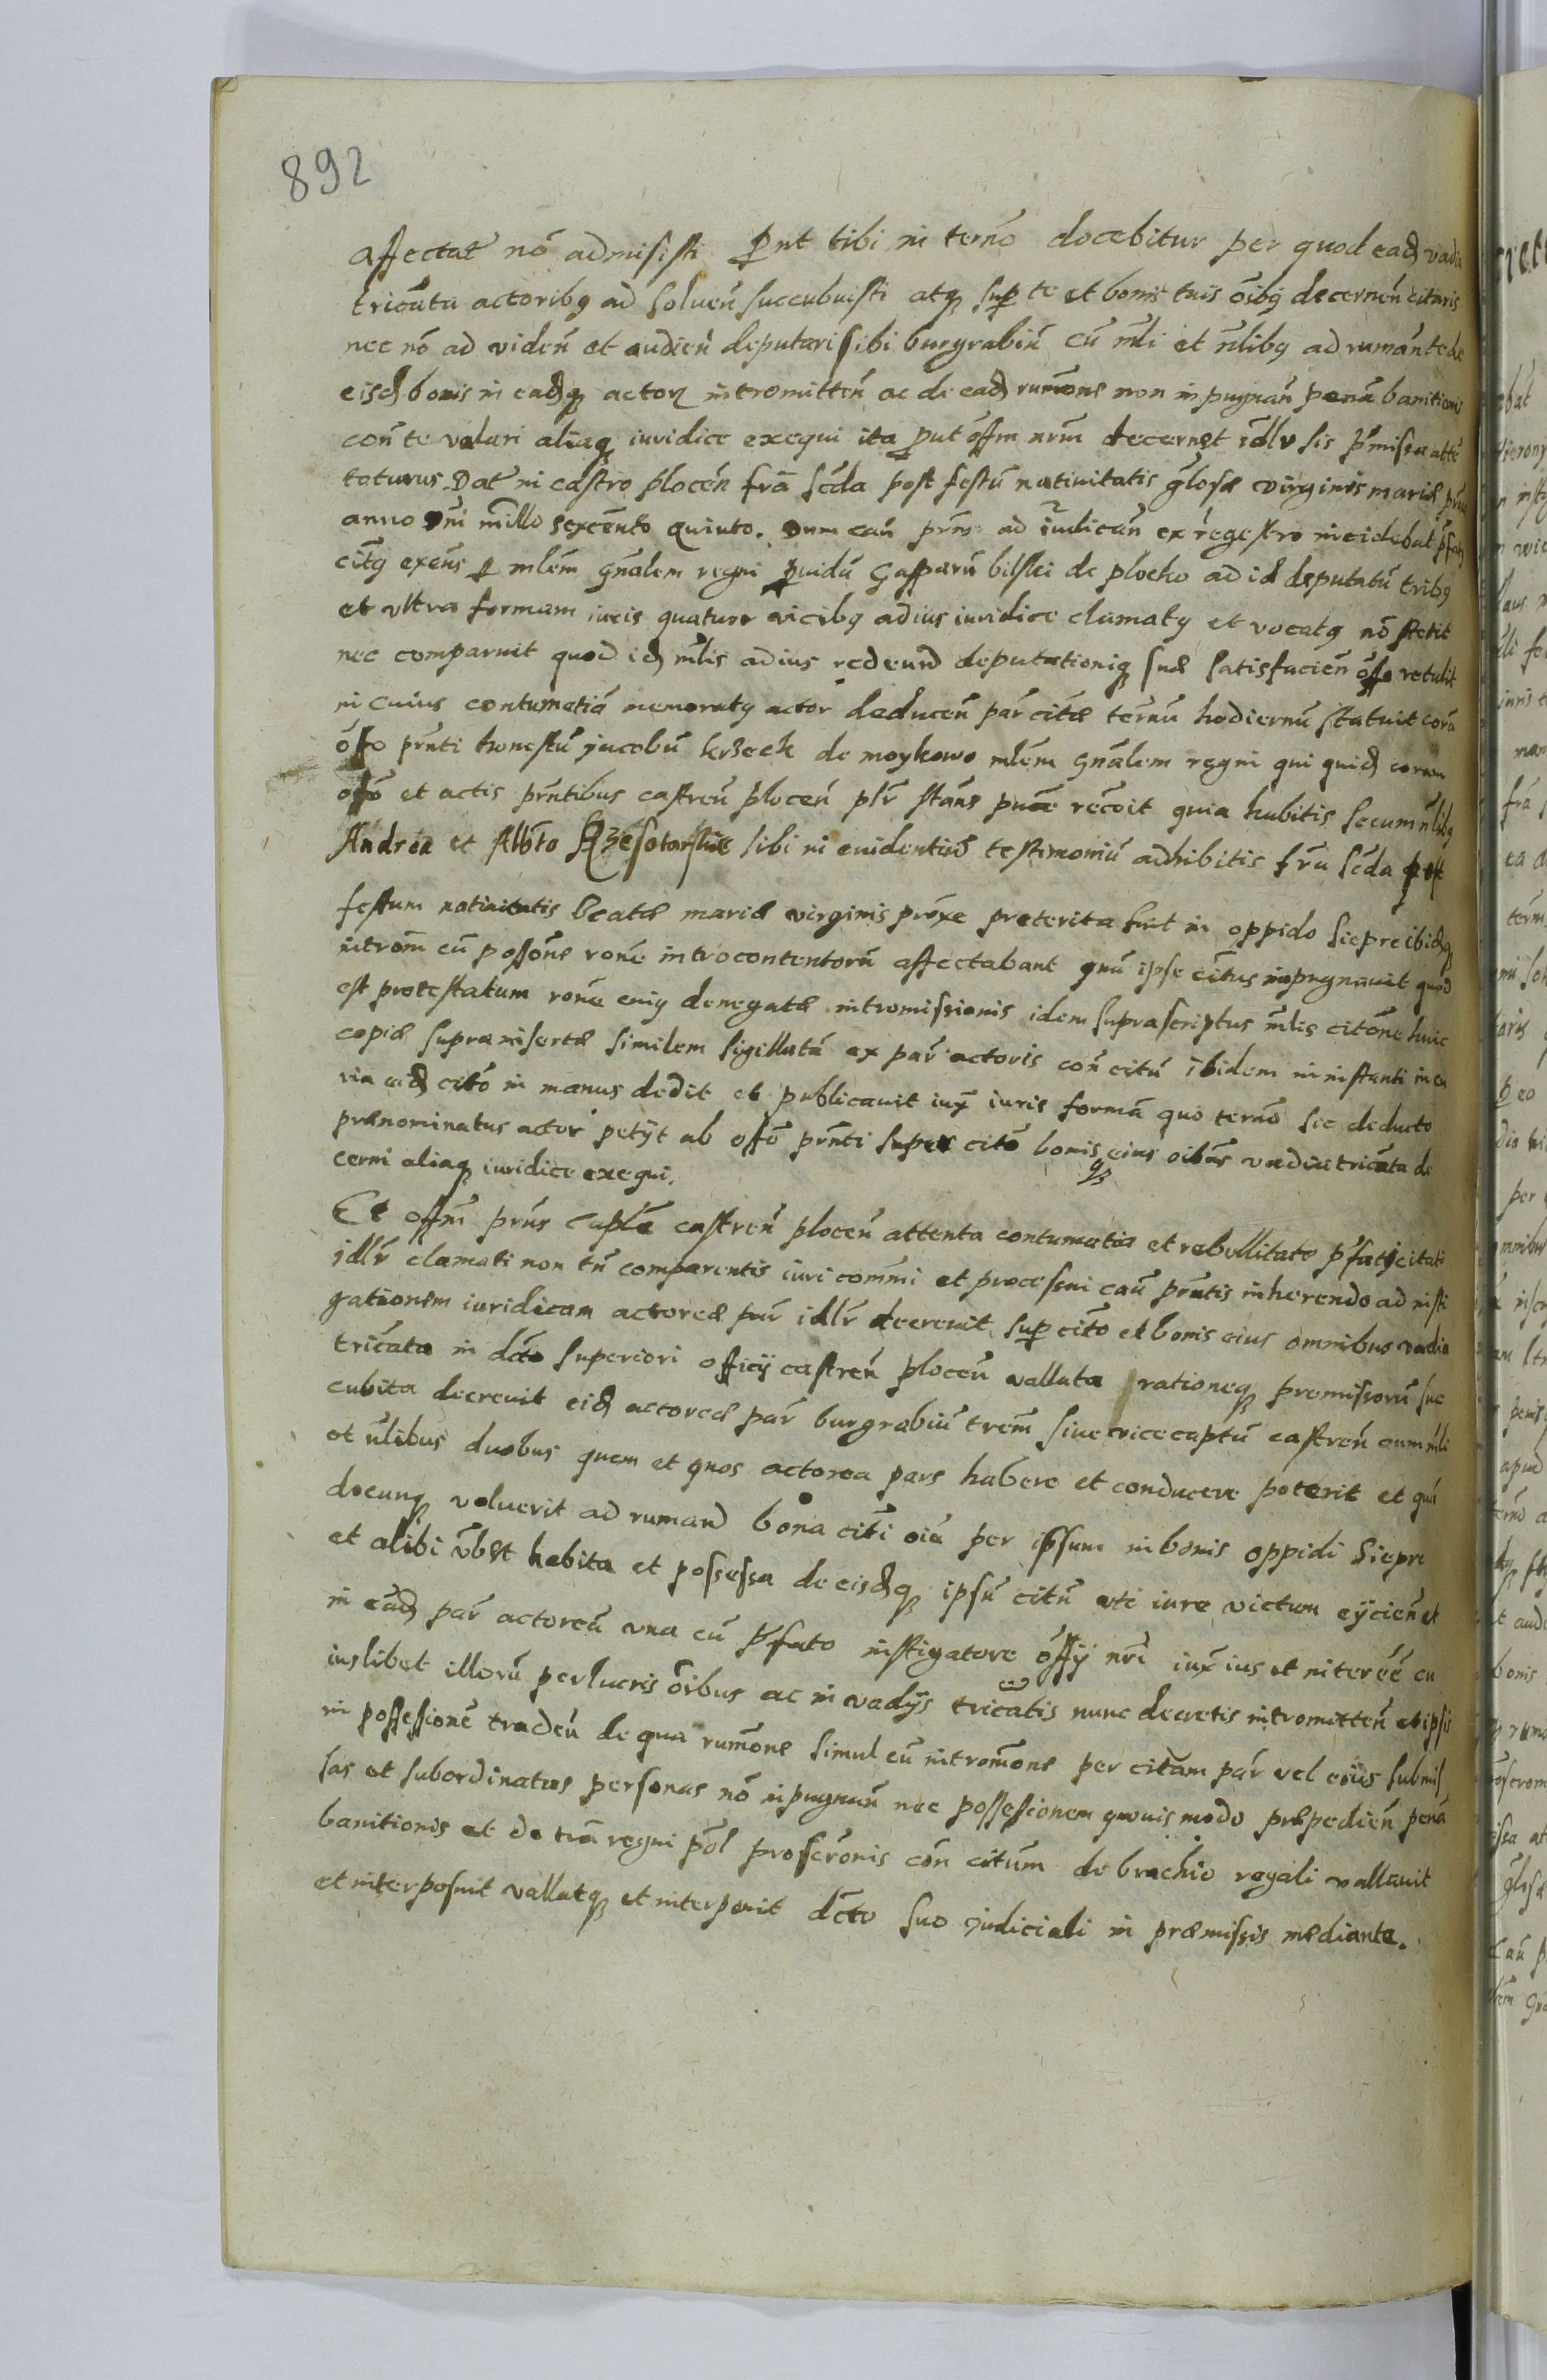 892
affectat nō admisisti ꝓut tibi in termō docebitur per quod ead vadia
tricata actoribꝫ ad soluen̄ succubuisti atqꝫ sup te et bonis tuis oībꝫ decernen̄ citaris
nec nō ad viden̄ et audien̄ deputari sibi burgrabiū cū mli et nlibꝫ ad ruman̄ te de
eisd bonis in eadqꝫ actor intromitten̄ ac de ead rumōne non inpugnan̄ pena banitionis
con̄ te valari aliaqꝫ iuridice exequi ita ꝓut offm nrm decernet idlr sis pmissa atten
taturus Dat in castro plocen̄ fra scda post festū natiuitatis glosæ virginis mariæ
anno dni millo sexcento quinto. Dum cau prns ad iudican̄ ex regestro incidebat
citꝫ exens ꝑ mlem gnalem regni ꝓuidū Gasparū bilski de plocko ad id deputatū tribꝫ
et vltra formam iuris quatuor vicibꝫ ad ius iuridice clamatꝫ et vocatꝫ nō stetit
nec comparuit quod id mlis ad ius redeund deputationiqꝫ suæ satisfacien̄ offo retulit
in cuius contumatiā memoratꝫ actor deducen̄ par citæ termū hodiernū statuit corā
offo prnti honestū jacobū krzeck de moykowo mlem gnalem regni qui quid coram
offo et actis prntibus castren̄ plocen̄ plr stans recoit quia habitis secum nlibꝫ
Andrea et Albto sibi in euidentius testimoniū adhibitis fra scda post
festum natiuitatis beatæ mariæ virginis proxe preterita fuit in oppido Siepre ibidqꝫ
introm eū possone rone introcontentorū affectabant qnū ipse citus inpugnauit quod
est protestatum rone cuiꝫ denegatæ intromissionis idem suprascriptus mlis citone huic
copiæ supra insertæ similem sigillatā ex par actoris con̄ citū ibidem in instanti in cu
ria eid cito in manus dedit et publicauit iux iuris formā quo termō sic deducto
prænominatus actor petijt ab offo prnti super cito bonisqꝫ eius oibus vadia tricata de
cerni aliaqꝫ iuridice exequi.
Et offm prns caple castren̄ plocen̄ attenta contumatia et rebellitate pfati citati
idlr clamati non tn̄ comparentis iuri comm̄i et processui cau prntis inherendo ad insti
gationem iuridicam actoreæ par idlr decreuit sup cito et bonis eius omnibus vadia
tricata in dcto superiori officij castren̄ plocen̄ vallata rationeqꝫ premissorū suc
cubita decreuit eid actoreæ par burgrabiū trem siue vicecaptū castren̄ cum mli
et nlibus duobus quem et quos actorea pars habere et conducere poterit et quā
docunqꝫ voluerit ad rumand bona citi oia per ipsum in bonis oppidi Siepre
et alibi vbet habita et possessa de eisdqꝫ ipsū citū uti iure victum eijcien̄ et
in ead par actoreū vna cū pfato instigatore offij nri iux ius et interēē cu
iuslibet illorū perlucris oibus ac in vadijs tricatis nunc decretis intromitten̄ et ipsis
in possessionē traden̄ de qua rumone simul cū intromone per citam par vel eius submis
sas et subordinatas personas nō inpugnan̄ nec possessionem quouis modo præpedien̄ pena
banitionis et de tra regni pol proscronis con̄ citum de brachio regali vallauit
et interposuit vallatqꝫ et interponit dcto suo judiciali in præmissis mediante.